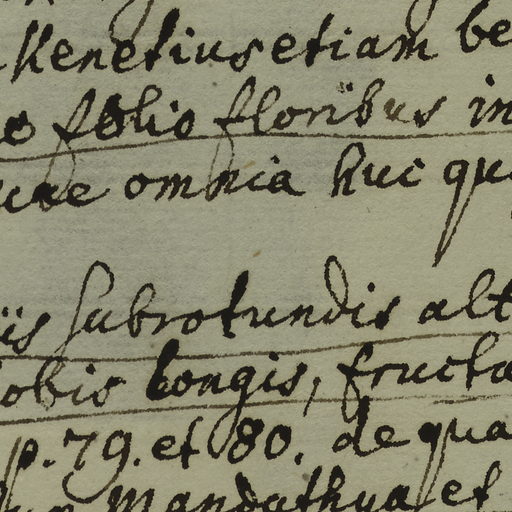 Kenetius etiam be
o folio floribus in
uae omnia huc qu
iis subrotundis alt
lobis longis, fructu
p. 79. et 80. de qua
Mandathya et